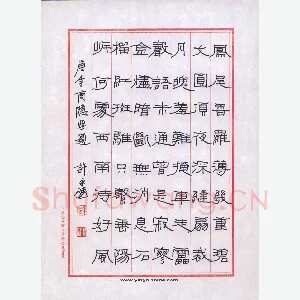 鳳尾香羅薄幾重碧
文圓頂夜深縫扇裁
月魄羞難掩車走雷
聲語未通曾是寂寥
金燼暗斷無消息石
榴紅班騅只繫垂陽
岸何處西南待好風
唐李商隱無題 許